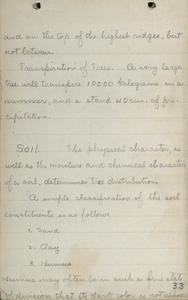 and on the top of the highest ridges, but
not between.
Transpiration of Trees. A very large
tree will transpire 10000 kilograms in a
summer, and a stand 40 cm. of pre-
cipitation.
Soil. The physical character, as
well as the moisture and chemical character
of a soil, determines tree distribution.
A simple classification of the soil
constituents is as follows
1. Sand
2. Clay
3. Humus
Humus may often be in such a fine state
of division that its dark color is not
33